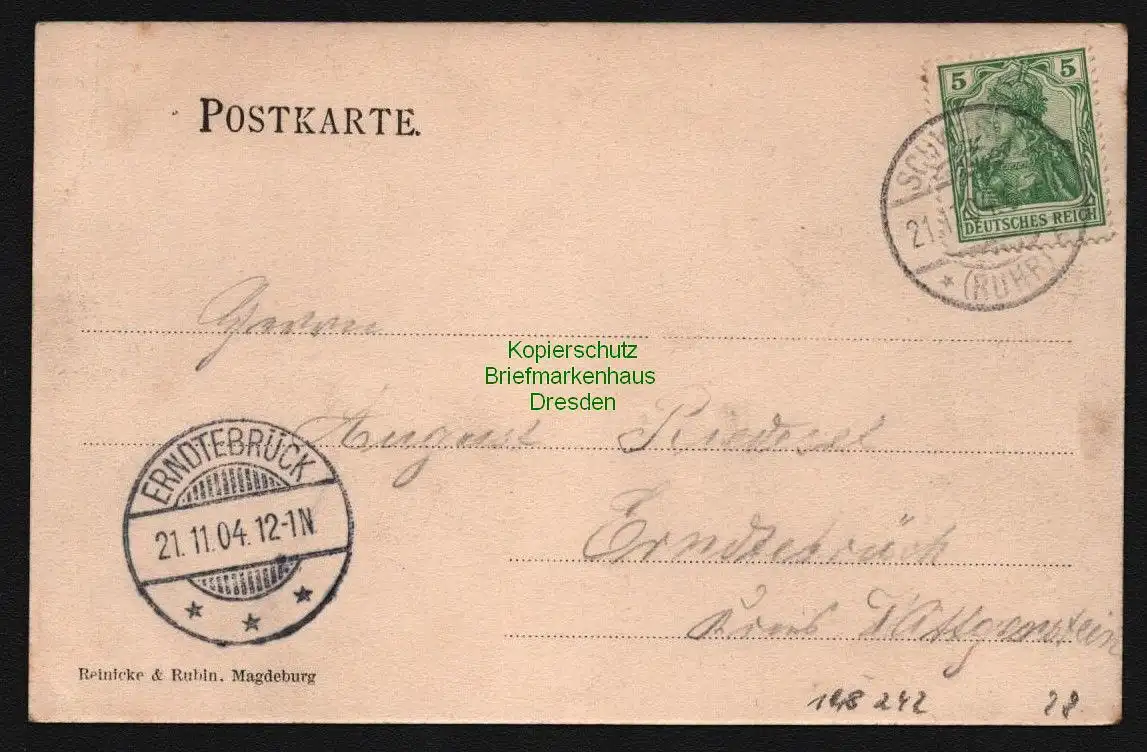 POSTKARTE.
5 5
DEUTSCHES REICH
21.
* (RUHR)
Herrn
Kopierschutz
Briefmarkenhaus
Dresden
August Riedesel
ERNDTEBRÜCK
21.11.04.12-1N
* * *
Erndtebrück
Kreis Wittgenstein
Reinicke & Rubin, Magdeburg
148 242 28